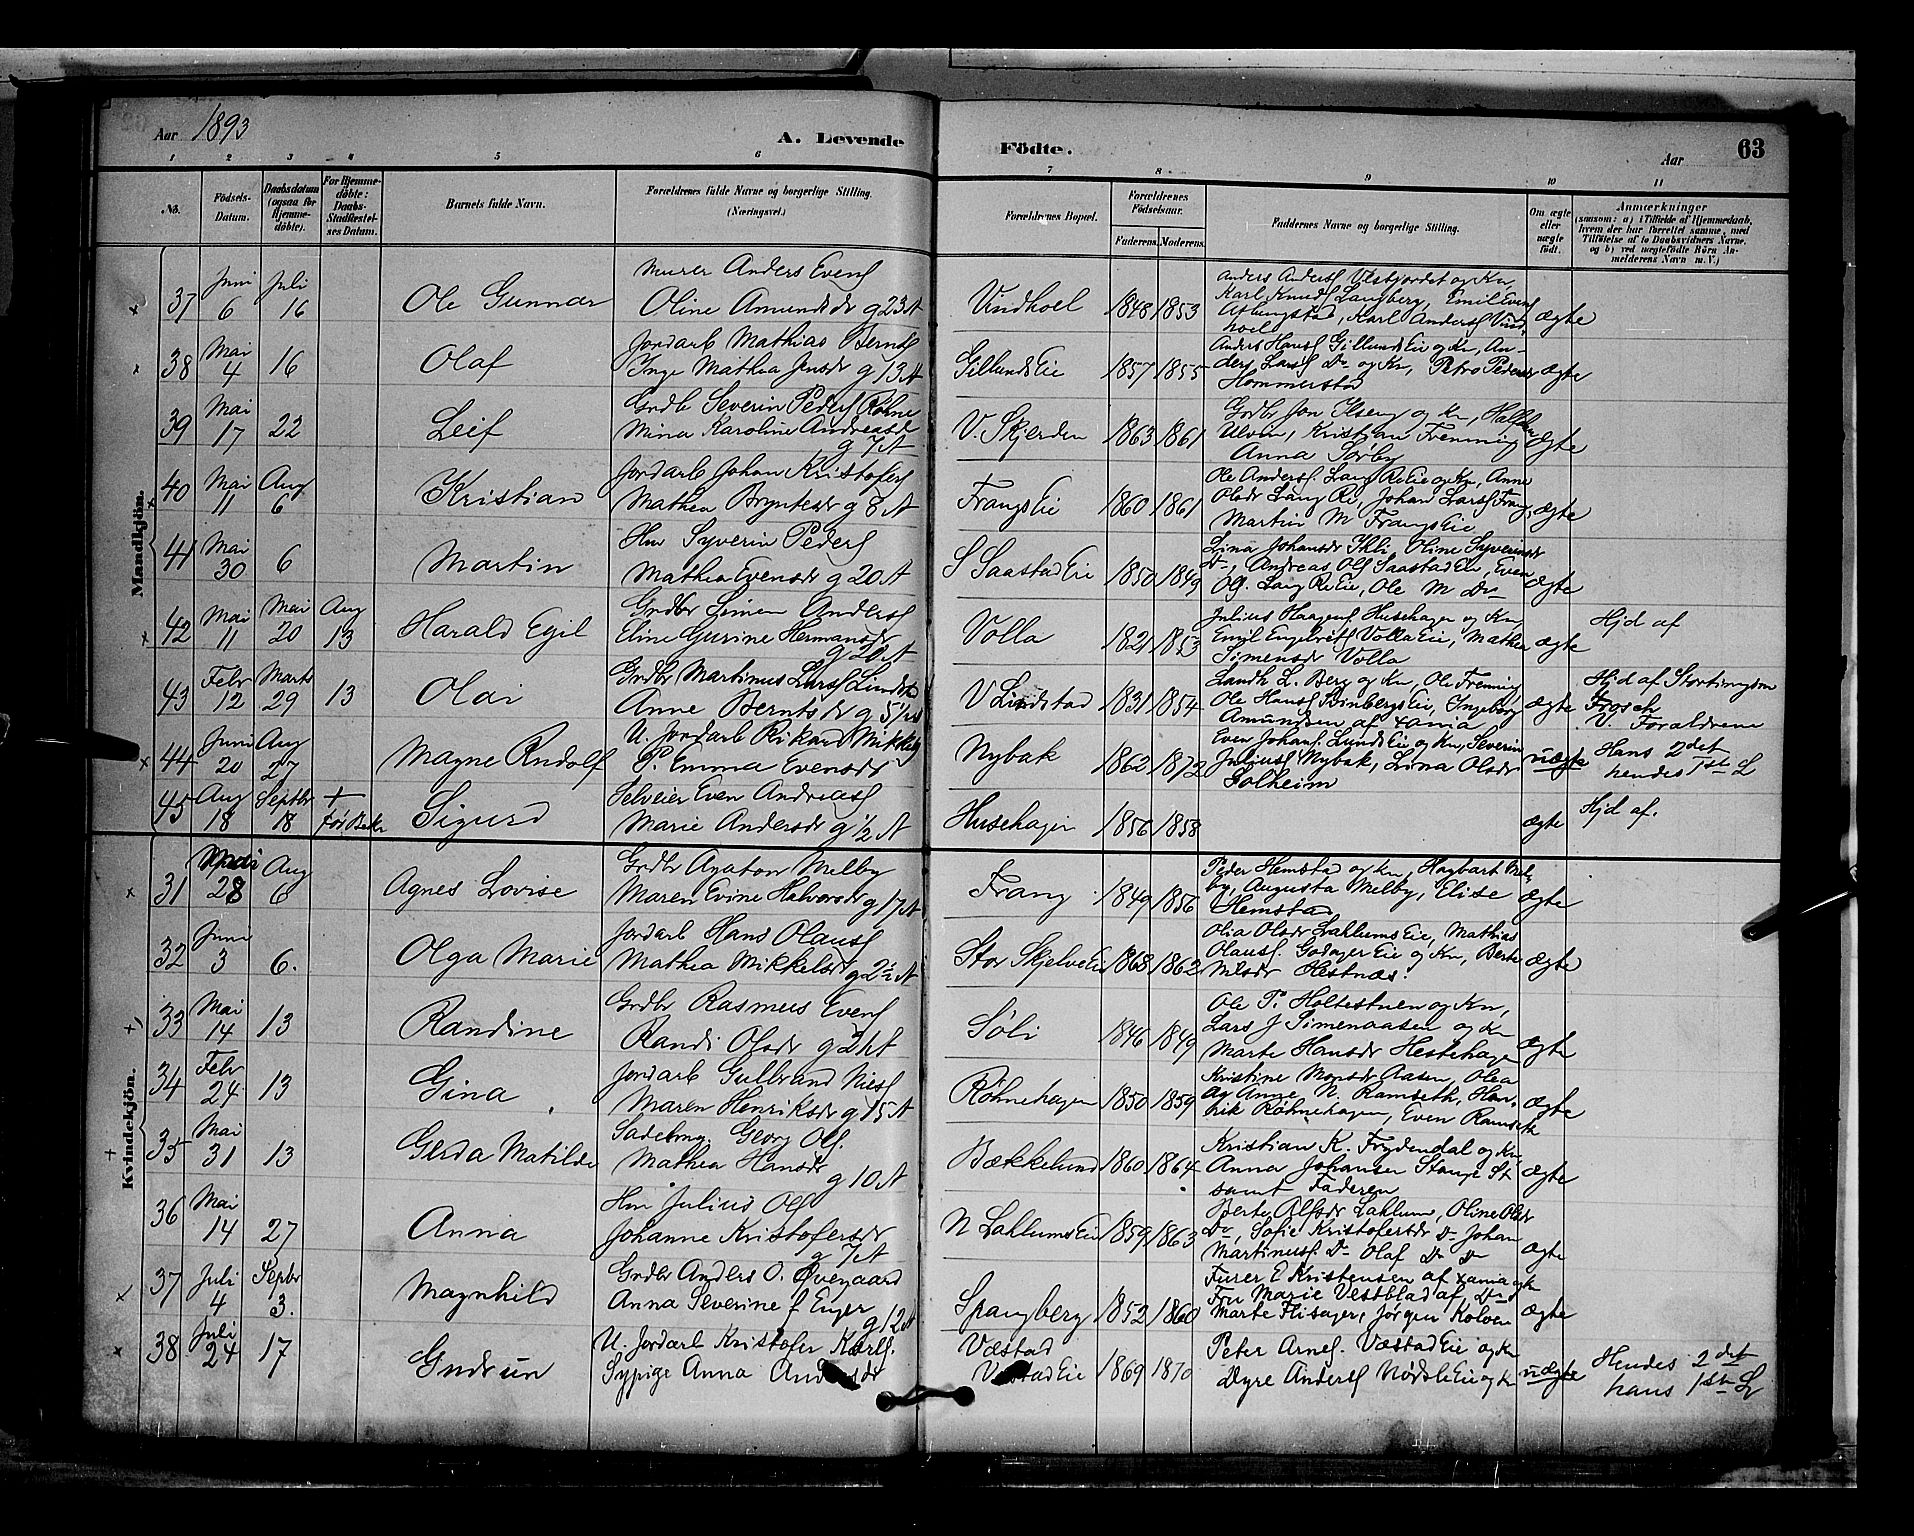 Aar 1893
A. Levende
Födte.
Aar
63
1 2 3 4 5 6 7 8 9 10 11
No.
Födsels-Datum.
Daabsdatum (ogsaa for Hjemme-døbte).
For Hjemme-døbte: Daabs-Stadfæstel-ses Datum.
Barnets fulde Navn.
Forældrenes fulde Navne og borgerlige Stilling. (Næringsvei.)
Forældrenes Bopæl.
Forældrenes Födselsaar.
Faderens. Moderens.
Faddernes Navne og borgerlige Stilling.
Om ægte eller uægte födt.
Anmærkninger
(saasom: a) i Tilfælde af Hjemmedaab,
hvem der har forrettet samme, med
Tilföielse af to Daabsvidners Navne.
og b) ved uægtefödte Börn An-
melderens Navn m. V.)
Mandkjön.
37 Juni 6 Juli 16 Ole Gunnar
Murer Anders Evens
Oline Amundsdr g 23 A
Vindhoel 1848 1853
Anders Anders Vestfjordet og Kn,
Karl Knuds Langberg, Emil Evens
Atlungstad, Karl Anders Vind
hoel
ægte
38 Mai 4 16 Olaf
Jordarb Mathias Bernts
Inge Mathea Jensdr g 13 A
Gillunds Eie 1857 1855
Anders Hans Gillunds Eie og Kn, An-
ders Lars Do og Kn, Petro Peders
Hommerstad
ægte
39 Mai 17 22 Leif
Grdbr Severin Peders Røhne
Mina Karoline Andreasdr
g 7 A
V. Skjerden 1863 1861
Grdbr Jon Ilseng og Kn, Halldan
Ulvin, Kristian Frenning
Anna Sørby
ægte
40 Mai 11 Aug 6 Kristian
Jordarb Johan Kristofers
Mathea Bryntesdr g 8 A
Frangs Eie 1860 1861
Ole Anders. Lang Re Eie og Kn, Anne
Olsdr Lang Re, Johan Lars Frang,
Martin M Frangs Eie
ægte
41 Mai 30 6 Martin
Hm Syverin Peders
Mathea Evensdr g 20 A
S Saastad Eie 1850 1849
Lina Johansdr Ihli, Oline Syverinsdr
Do, Andreas Ols Saastad Eie, Even
Ols. Lang Re Eie, Ole M Do
ægte
42 Mai 11 Mai 20 Aug 13 Harald Egil
Grdbr Simen Anders
Eline Gurine Hermansdr
g 20 A
Volla 1821 1853
Julius Haagens Husehagen og Kn,
Emil Engebrets Volla Eie, Mathea
Simensdr Volla
ægte
Hjd af
43 Febr 12 Marts 29 13 Olai
Grdbr Martinus Lars Lindstad
Anne Berntsdr g 5 1/2 A
V Lindstad 1831 1854
Landh L. Berg og Kn, Ole Frenning
Ole Hans Stinbergs Eie, Ingeborg
Amundsen af Xania
ægte
Hjd af Stortingsm
Frosch
V. Forældrene
44 Juni 20 Aug 27 Magne Rudolf
U. Jordarb Rikard Mikkels
P. Emma Evensdr
Nybak 1862 1872
Even Johans. Lunds Eie og Kn, Severin
Julius Nybak, Lina Olsdr
Solheim
uægte
Hans 2det
hendes 1ste L
45 Aug 18 Septbr 18 + Sigurd
Selveier Even Andreas
Marie Andersdr g 1/2 A
Husehagen 1856 1858
ægte
Hjd af.
Kvindekjön.
31 Mai 28 Aug 6 Agnes Lovise
Grdbr Agaton Melby
Maren Evine Halvorsdr g 17 A
Frang 1849 1856
Peder Hemstad og Kn, Hagbart Mel
by, Augusta Melby, Elise
Hemstad
ægte
32 Juni 3 6. Olga Marie
Jordarb Hans Olaus
Mathea Mikkelsdr g 2 1/2 A
Stor Skjelve Eie 1868 1862
Olia Olsdr Laklums Eie, Mathias
Olaus. Godager Eie og Kn, Berte
Nilsdr Hestnæs.
ægte
33 Mai 14 13 Randine
Grdbr Rasmus Evens
Randi Olsdr g 21 A
Søli 1846 1849
Ole P. Holtestuen og Kn,
Lars J Simenaasen og Kn
Marte Hansdr Hestehagen
ægte
34 Febr 24 13 Gina
Jordarb Gulbrand Niels
Maren Henriksdr g 15 A
Røhnehagen 1850 1859
Kristine Monsdr Aasen, Olea
og Anne N. Ramseth, Hen-
rik Røhnehagen, Even Ramseth
ægte
35 Mai 31 13 Gerda Matilde
Sadelmg. Georg Ols.
Mathea Hansdr
g 10 A
Bækkelund 1860 1864
Kristian K. Frydendal og Kn,
Anna Johansen Stange St
samt Faderen
ægte
36 Mai 14 27 Anna
Hm Julius Ols
Johanne Kristofersdr
g 7 A
N Laklums Eie 1859 1863
Berte Alfsdr Laklums, Oline Olsdr
Do, Sofie Kristofersdr Do Johan
Martinus. Do Olaf Do Do
ægte
37 Juli 4 Septbr 3. Magnhild
Grdbr Anders O. Øvegaard
Anna Severine f Enger g 12 A
Spangberg 1852 1860
Furer E Kristensen af Xania og Kn
Fru Marie Vestblad af Do
Marte Flisager, Jørgen Kolven
ægte
38 Juli 24 17 Gudrun
U. Jordarb Kristofer Karls.
Sypige Anna Andersdr
Væstad
Væstad Eie 1869 1870
Peter Arnes. Væstad Eie og Kn
Dyre Anders Nørdsli Eie og Kn
uægte
Hendes 2det
hans 1ste L